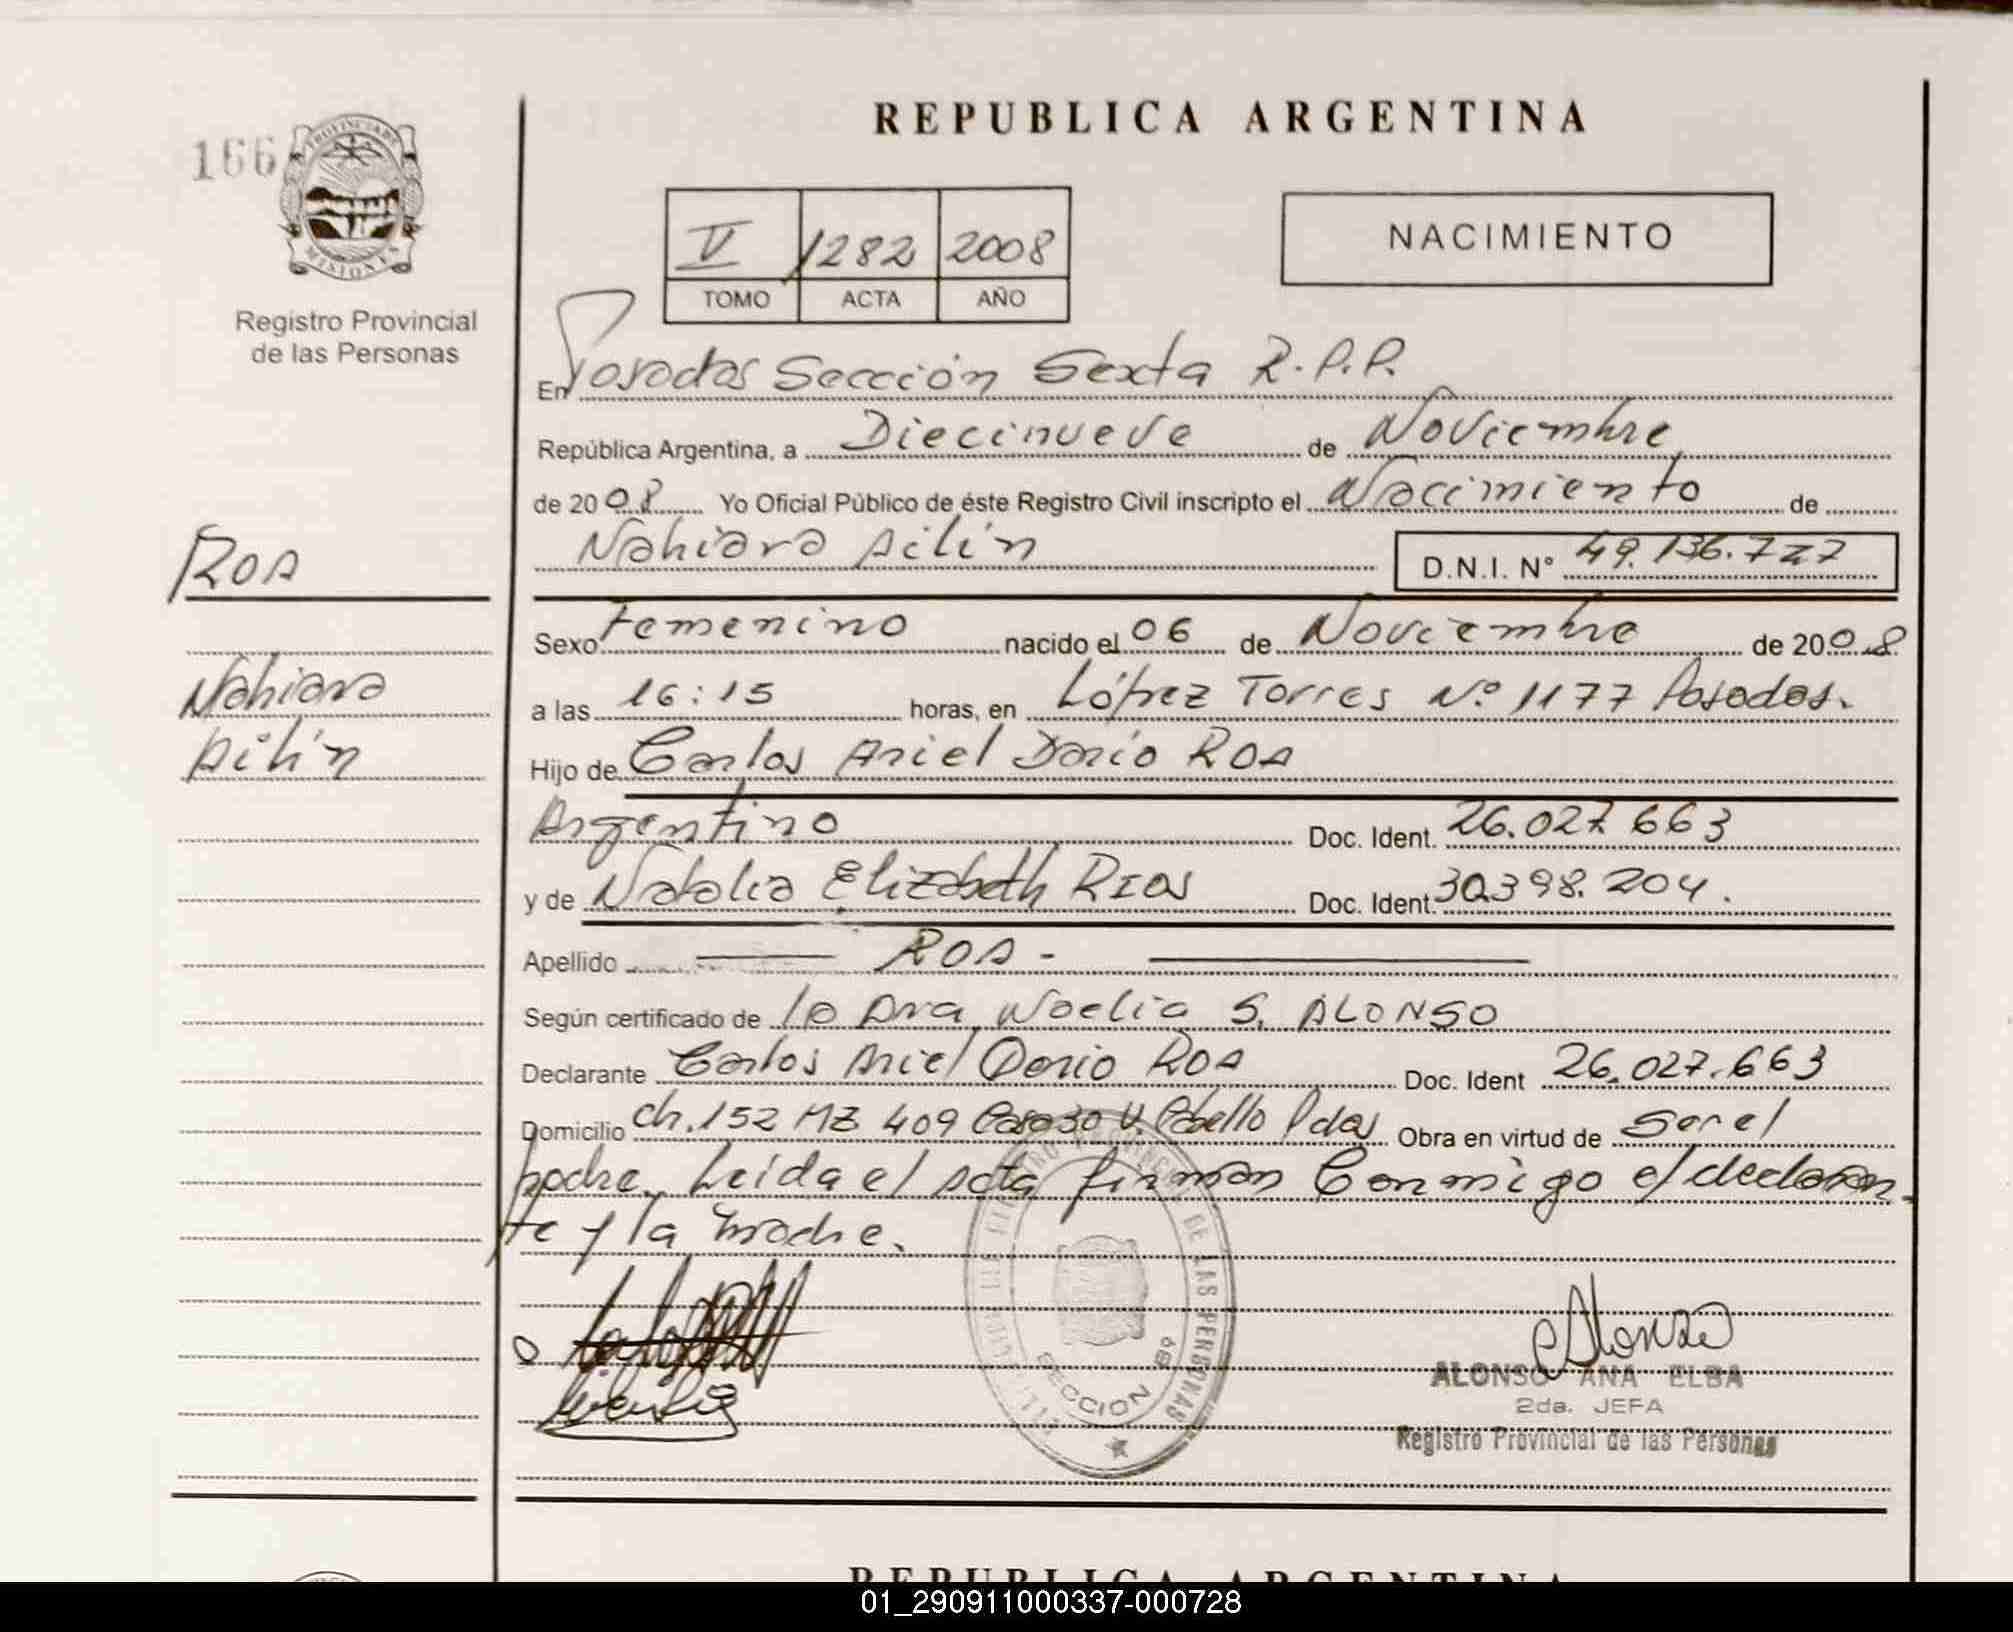 REPUBLICA ARGENTINA
166
PROVINCIA DE
MISIONES
Registro Provincial
de las Personas
V 1282 2008
TOMO ACTA AÑO
NACIMIENTO
En Posadas Sección Sexta R.P.P.
República Argentina, a Diecinueve de Noviembre
de 2008 Yo Oficial Público de éste Registro Civil inscripto el Nacimiento de
Nahiara Ailín D.N.I. N° 49.136.727
ROA
Nahiara
Ailín
Sexo Femenino nacido el 06 de Noviembre de 2008
a las 16:15 horas, en López Torres N° 1177 Posadas.
Hijo de Carlos Ariel Dario ROA
Argentino Doc. Ident. 26.027.663
y de Natalia Elizabeth RIOS Doc. Ident. 30.398.204.
Apellido ROA -
Según certificado de la Dra Noelia S. ALONSO
Declarante Carlos Ariel Dario ROA Doc. Ident 26.027.663
Domicilio Ch. 152 MZ 409 Casa 30 V. Cabello Pdas Obra en virtud de Ser el
padre. Leida el acta firman Conmigo el declaran-
te y la madre.
DE LAS PERSONAS
SECCION
Alonso
ALONSO ANA ELBA
2da. JEFA
Registro Provincial de las Personas
REPUBLICA ARGENTINA
01_290911000337-000728